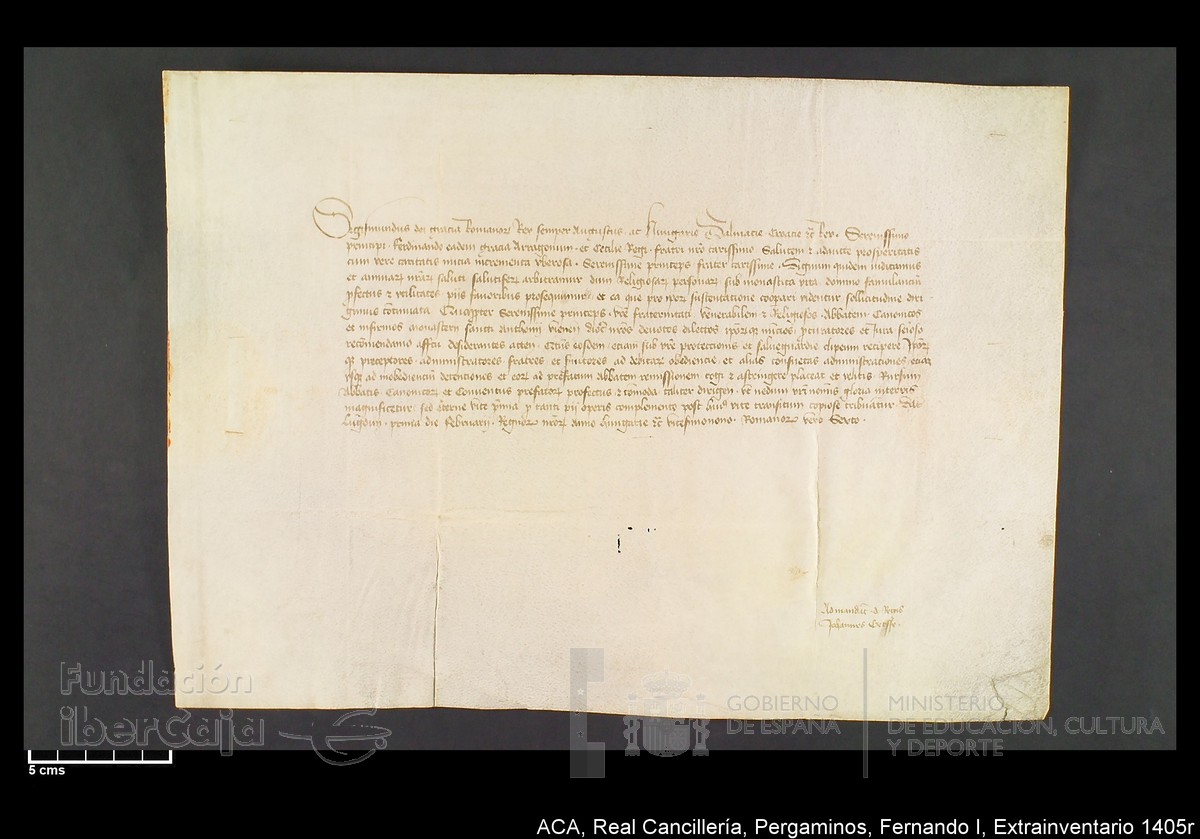 Sigismundus dei gracia Romanor Rex semper Augustus ac Hungarie Dalmacie Croacie etc Rex. Serenissimo
principi Ferdinando eadem gracia Arragonum et Cecilie Regi fratri nro carissimo Salutem et adaucte prosperitatis
cum vere caritatis incrementa Serenissime princeps frater carissime Dignum quidem iudicamus
et animar nrar saluti salutifer arbitramur dum Religiosar personar sub monastica vita domino famulancium
pfectus et utilitates piis favoribus prosequimur et ea que pro ipor sustentacione cooperari videntur sollicitudine diri
gimus continuata Serenissime princeps vre fraternitati venerabilem et Religiosos Abbatem Canonicos
et infirmos Monasterii sancti Anthonii vienen dioc nros devotos dilectos ipor nuncios pcuratores et Jura
recomendamus desiderantes eosdem eciam sub vre protectionis et salveguardie clipeum recipere Ipor
preceptores administratores fratres et ad debitam obediencie et alias consuetas administraciones
ad inobediencium detenciones et eor ad prefatum Abbatem remissionem cogi et astringere placeat et velitis
Abbatis Canonicor et Conventus prefator profectus et comoda taliter dirigen ut nedum vri nominis gloria
magnificetur sed eterne vite pmia p tanti pii operis complemento post huius vite transitum copiose tribuantur Dat
prima die Februarii Regnor nror anno Hungarie etc vicesimonono Romanor vero Sexto
Ad mandat d Regis
Johannes
Fundación
iberCaja
GOBIERNO
DE ESPAÑA
MINISTERIO
DE EDUCACIÓN, CULTURA
Y DEPORTE
5 cms
ACA, Real Cancillería, Pergaminos, Fernando I, Extrainventario 1405r